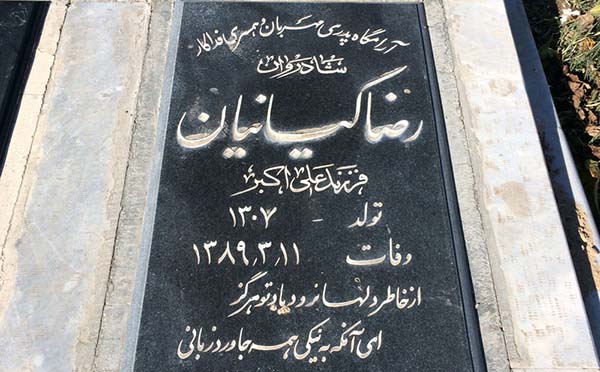 آرامگاه پدری مهربان و همسری فداکار
شادروان
رضا کیانیان
فرزند علی اکبر
تولد - ۱۳۰۷
وفات ۱۳۸۹٫۳٫۱۱
از خاطر دلها نرود یاد تو هرگز
ای آنکه به نیکی همه جا ورد زبانی